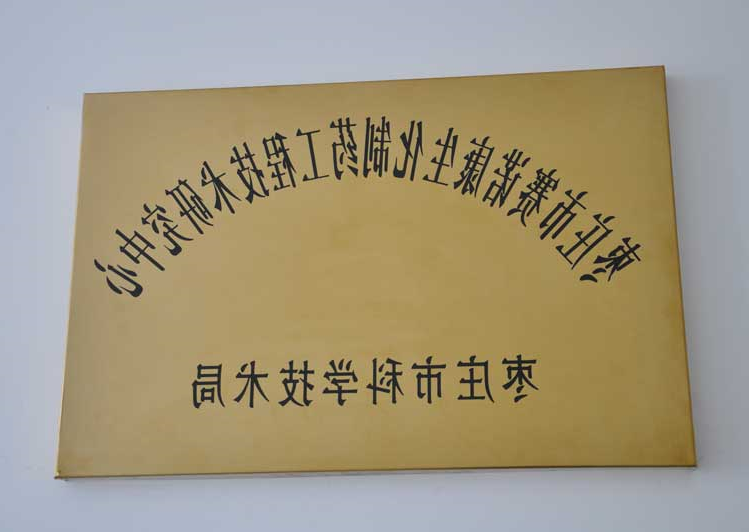 枣庄市赛诺康生化制药工程技术研究中心
枣庄市科学技术局